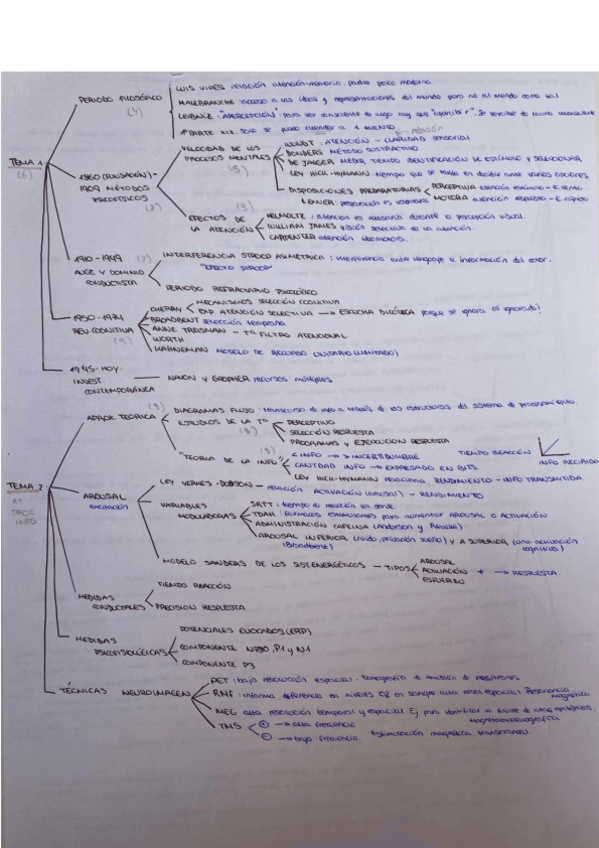 LUIS VIVES relación atención-memoria. padre psico moderna
PERIODO FILOSÓFICO
(4)
MALEBRANCHE acceso a las ideas y representaciones del mundo pero no al mundo como tal
LEIBNIZ "APERCEPCIÓN" para ser consciente de algo hay que "apercibir". Se percibe de forma
1ª PARTE XIX. solo se puede atender a 1 evento
TEMA 1
(6)
1860 (FUNDACIÓN) - 1909 MÉTODOS PSICOFÍSICOS
(2)
VELOCIDAD DE LOS PROCESOS MENTALES
(5)
WUNDT. ATENCIÓN - CLARIDAD SENSORIAL
DONDERS MÉTODO SUSTRACTIVO
DE JAEGER MEDIR TIEMPO IDENTIFICACIÓN DE ESTÍMULO Y SELECCIONAR
LEY HICK-HYMANN: tiempo que se tarda en decidir ante varias opciones
DISPOSICIONES PREPARATORIAS
PERCEPTIVA atención estímulo - E. lento
MOTORA atención respuesta - E. rápido
preparación es voluntaria
EFECTOS DE LA ATENCIÓN
(3)
HELMOLTZ: atención es necesaria durante la percepción visual.
WILLIAM JAMES visión selectiva de la atención.
CARPENTER atención ideomotora.
1910 - 1949
AUGE Y DOMINIO CONDUCTISTA
(2)
INTERFERENCIA STROOP ASIMÉTRICA: interferencia entre lenguaje e información del color.
"EFECTO STROOP"
PERIODO REFRACTARIO PSICOLÓGICO
1950 - 1974
REV. COGNITIVA
(5)
CHERRY
MECANISMOS SELECCIÓN COGNITIVA
EXP. ATENCIÓN SELECTIVA → ESCUCHA DICÓTICA porque se ignora el ignorado!
BROADBENT selección temprana
ANNE TREISMAN - Tª FILTRO ATENCIONAL
WORTH
KAHNEMAN MODELO DE RECURSO UNITARIO (LIMITADO)
1975-HOY:
INVEST. CONTEMPORÁNEA
NAVON Y GROPHER recursos múltiples
TEMA 2
AT PROC INFO
APROX. TEÓRICA
(3)
DIAGRAMAS FLUJO: transcurso de info a través de las estructuras del sistema de procesamiento.
ESTUDIOS DE LA Tª
(3)
PERCEPTIVO
SELECCIÓN RESPUESTA
PROGRAMAS Y EJECUCIÓN RESPUESTA
"TEORÍA DE LA INFO"
(3)
< INFO → > INCERTIDUMBRE
CANTIDAD INFO → EXPRESADO EN BITS.
LEY HICK-HYMANN relaciona RENDIMIENTO - INFO TRANSMITIDA
TIEMPO REACCIÓN
INFO RECIBIDA
AROUSAL
EXCITACIÓN
LEY YERKES-DODSON - relación ACTIVACIÓN (arousal) - RENDIMIENTO
VARIABLES MODULADORAS
SRTT: tiempo de reacción en serie.
TDAH fármacos estimulantes para aumentar AROUSAL O ACTIVACIÓN
ADMINISTRACIÓN CAFEÍNA (Anderson y Revelle)
AROUSAL INFERIOR (ruido, privación sueño) Y A SUPERIOR (una activación cognitiva)
(Broadbent)
MODELO SANDERS DE LOS SIST. ENERGÉTICOS - TIPOS
AROUSAL
ACTIVACIÓN + → RESPUESTA
ESFUERZO
MEDIDAS CONDUCTALES
TIEMPO REACCIÓN
PRECISIÓN RESPUESTA
MEDIDAS PSICOFISIOLÓGICAS
POTENCIALES EVOCADOS (ERP)
COMPONENTE N290, P1 y N1
COMPONENTE P3
TÉCNICAS NEUROIMAGEN
PET: baja resolución espacial. Tomografía de emisión de positrones
RMF: informa diferencia en niveles O2 en sangre alta resol. espacial Resonancia magnética
MEG alta resolución temporal y espacial Ej para identificar la fuente de ataq. epilépticos.
Magnetoencefalografía
TMS
+ → alta frecuencia
- → baja frecuencia
Estimulación magnética transcraneal